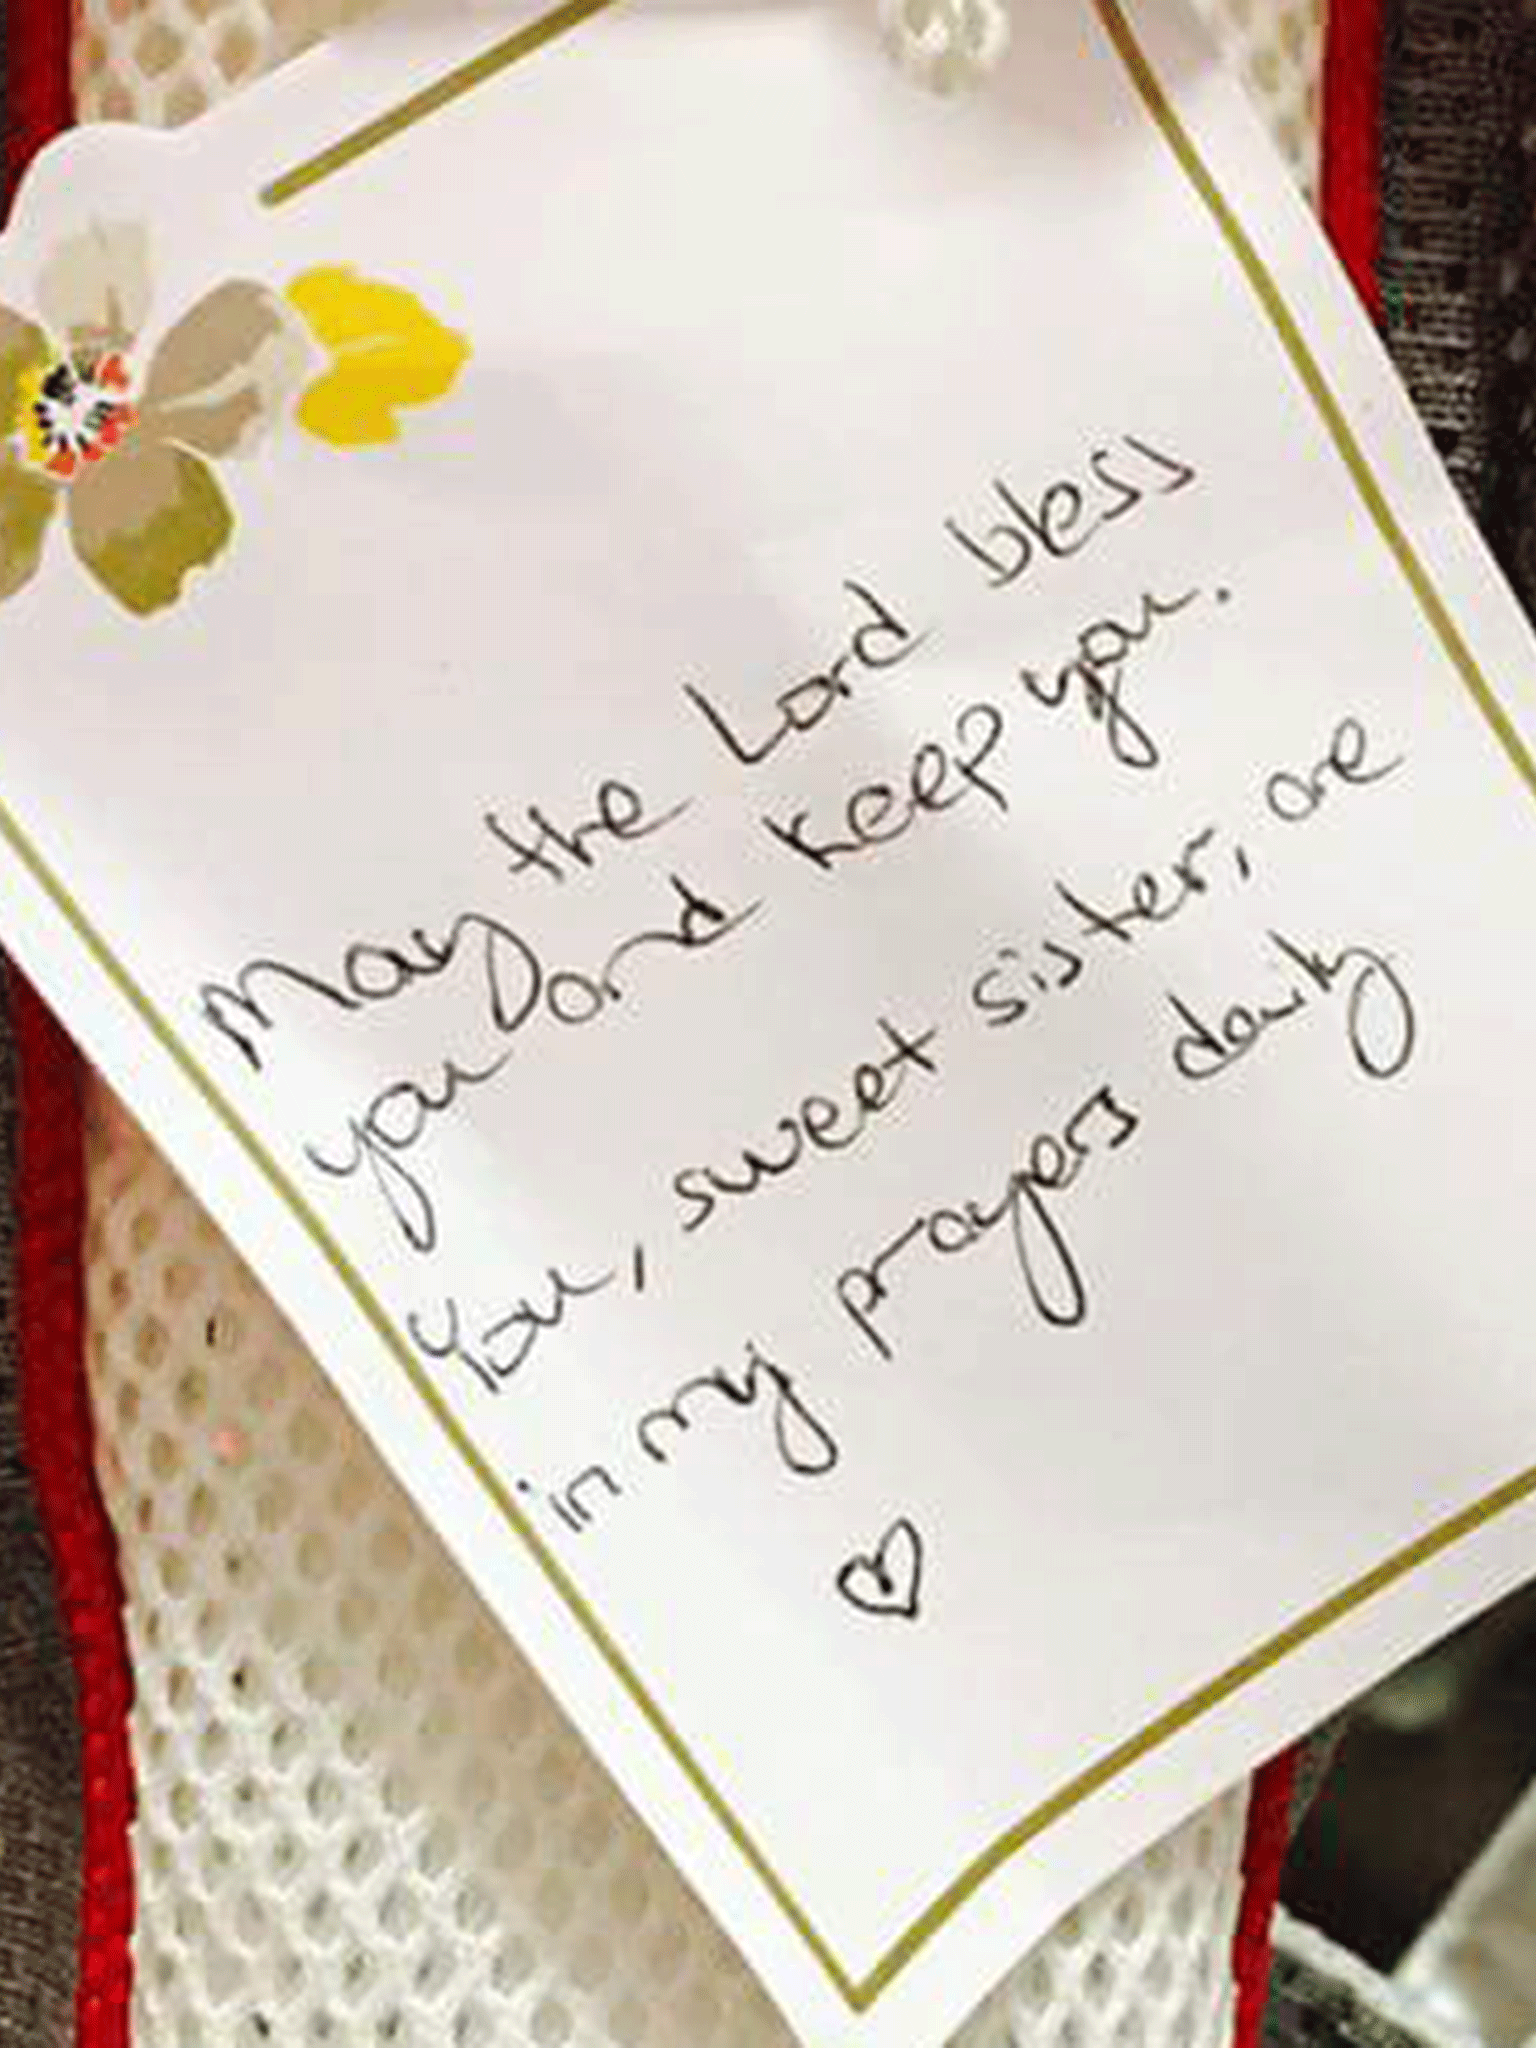 May the Lord bless
you and keep you.
You, sweet sister, are
in my prayers daily
♡